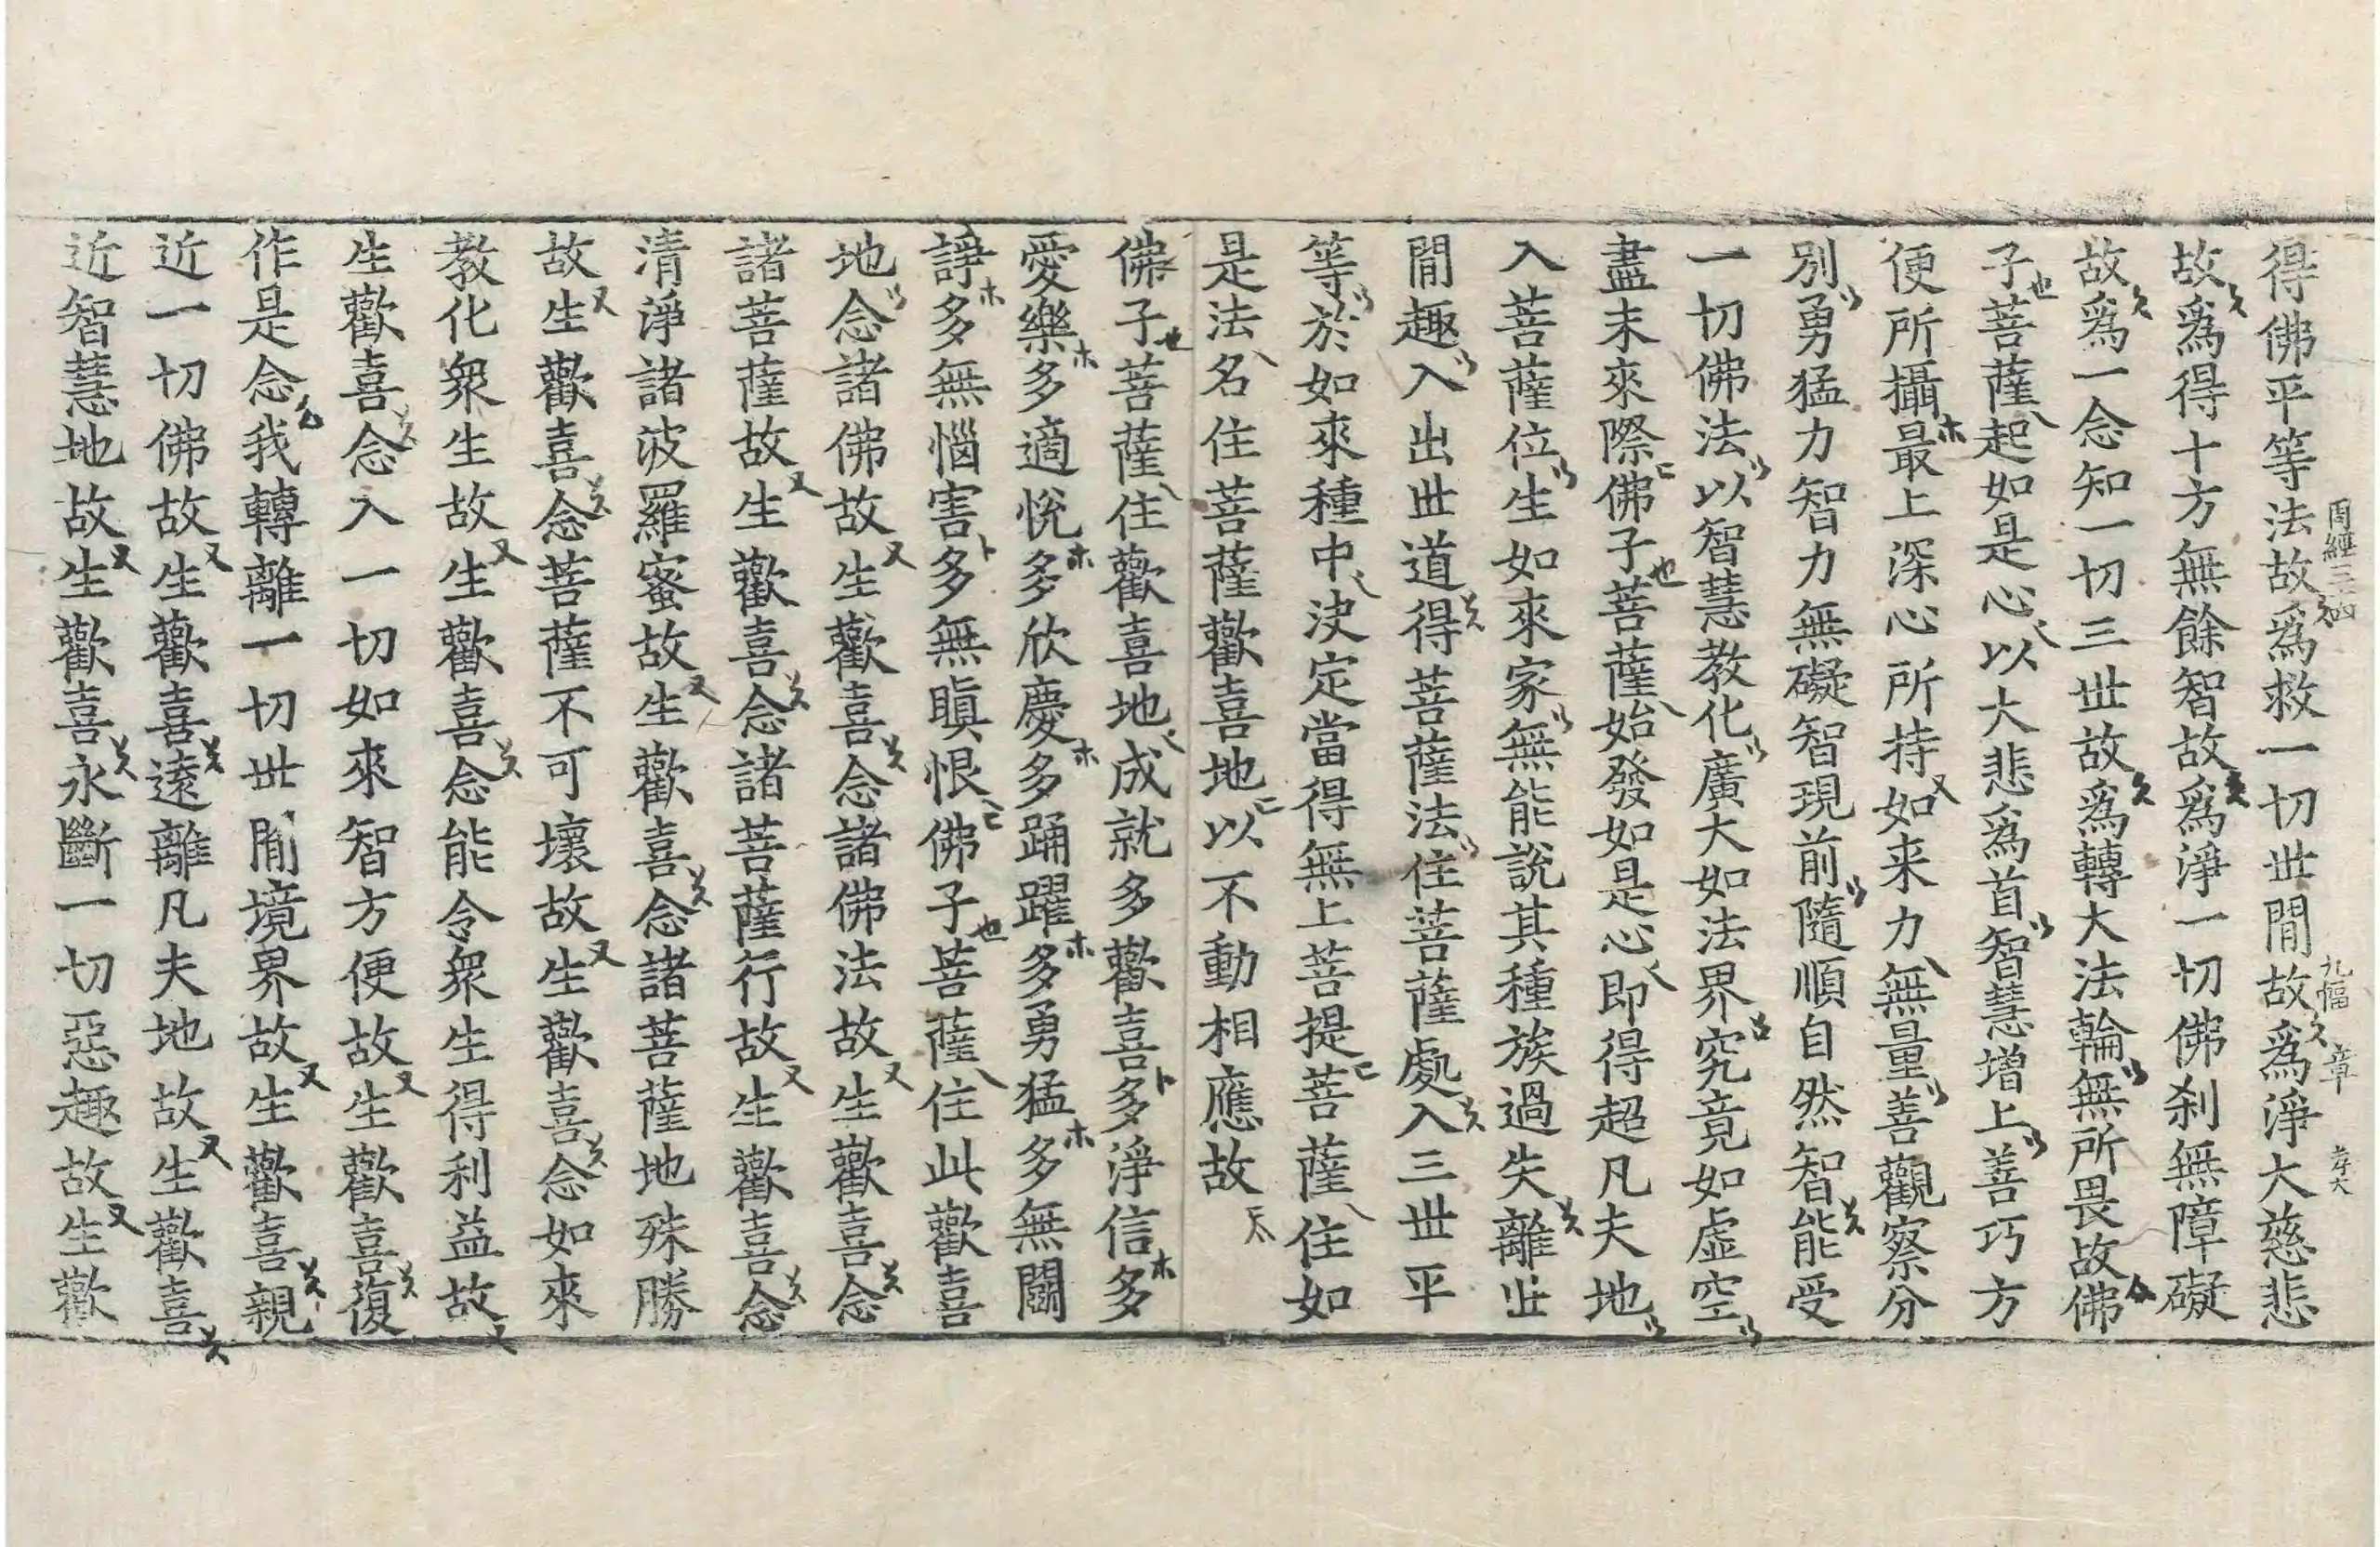 得佛平等法故爲救一切世間故爲淨大慈悲
故爲得十方無餘智故爲淨一切佛刹無障礙
故爲一念知一切三世故爲轉大法輪無所畏故佛
子菩薩起如是心以大悲爲首智慧增上善巧方
便所攝最上深心所持如来力無量善觀察分
別勇猛力智力無礙智現前隨順自然智能受
一切佛法以智慧教化廣大如法界究竟如虛空
盡未來際佛子菩薩始發如是心即得超凡夫地
入菩薩位生如來家無能說其種族過失離世
間趣入出世道得菩薩法住菩薩處入三世平
等於如來種中決定當得無上菩提菩薩住如
是法名住菩薩歡喜地以不動相應故
佛子菩薩住歡喜地成就多歡喜多淨信多
愛樂多適悅多欣慶多踊躍多勇猛多無鬪
諍多無惱害多無瞋恨佛子菩薩住此歡喜
地念諸佛故生歡喜念諸佛法故生歡喜念
諸菩薩故生歡喜念諸菩薩行故生歡喜念
清淨諸波羅蜜故生歡喜念諸菩薩地殊勝
故生歡喜念菩薩不可壞故生歡喜念如來
教化衆生故生歡喜念能令衆生得利益故
生歡喜念入一切如來智方便故生歡喜復
作是念我轉離一切世間境界故生歡喜親
近一切佛故生歡喜遠離凡夫地故生歡喜
近智慧地故生歡喜永斷一切惡趣故生歡